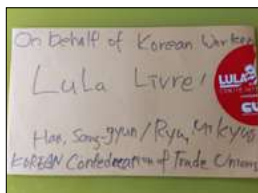 On behalf of Korean Worker
Lula Livre!
LULA
Han, Sang-gyun / Ryu, Mi kyung
KOREAN Confederation of Trade Unions